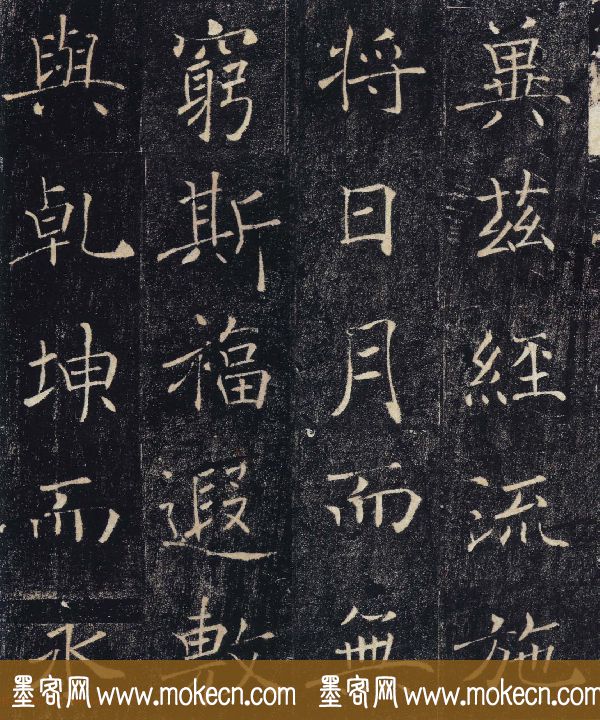 冀兹經流施
将日月而無
窮斯福遐敷
與乹坤而永
墨客网 www.mokecn.com 墨客网 www.mokecn.com